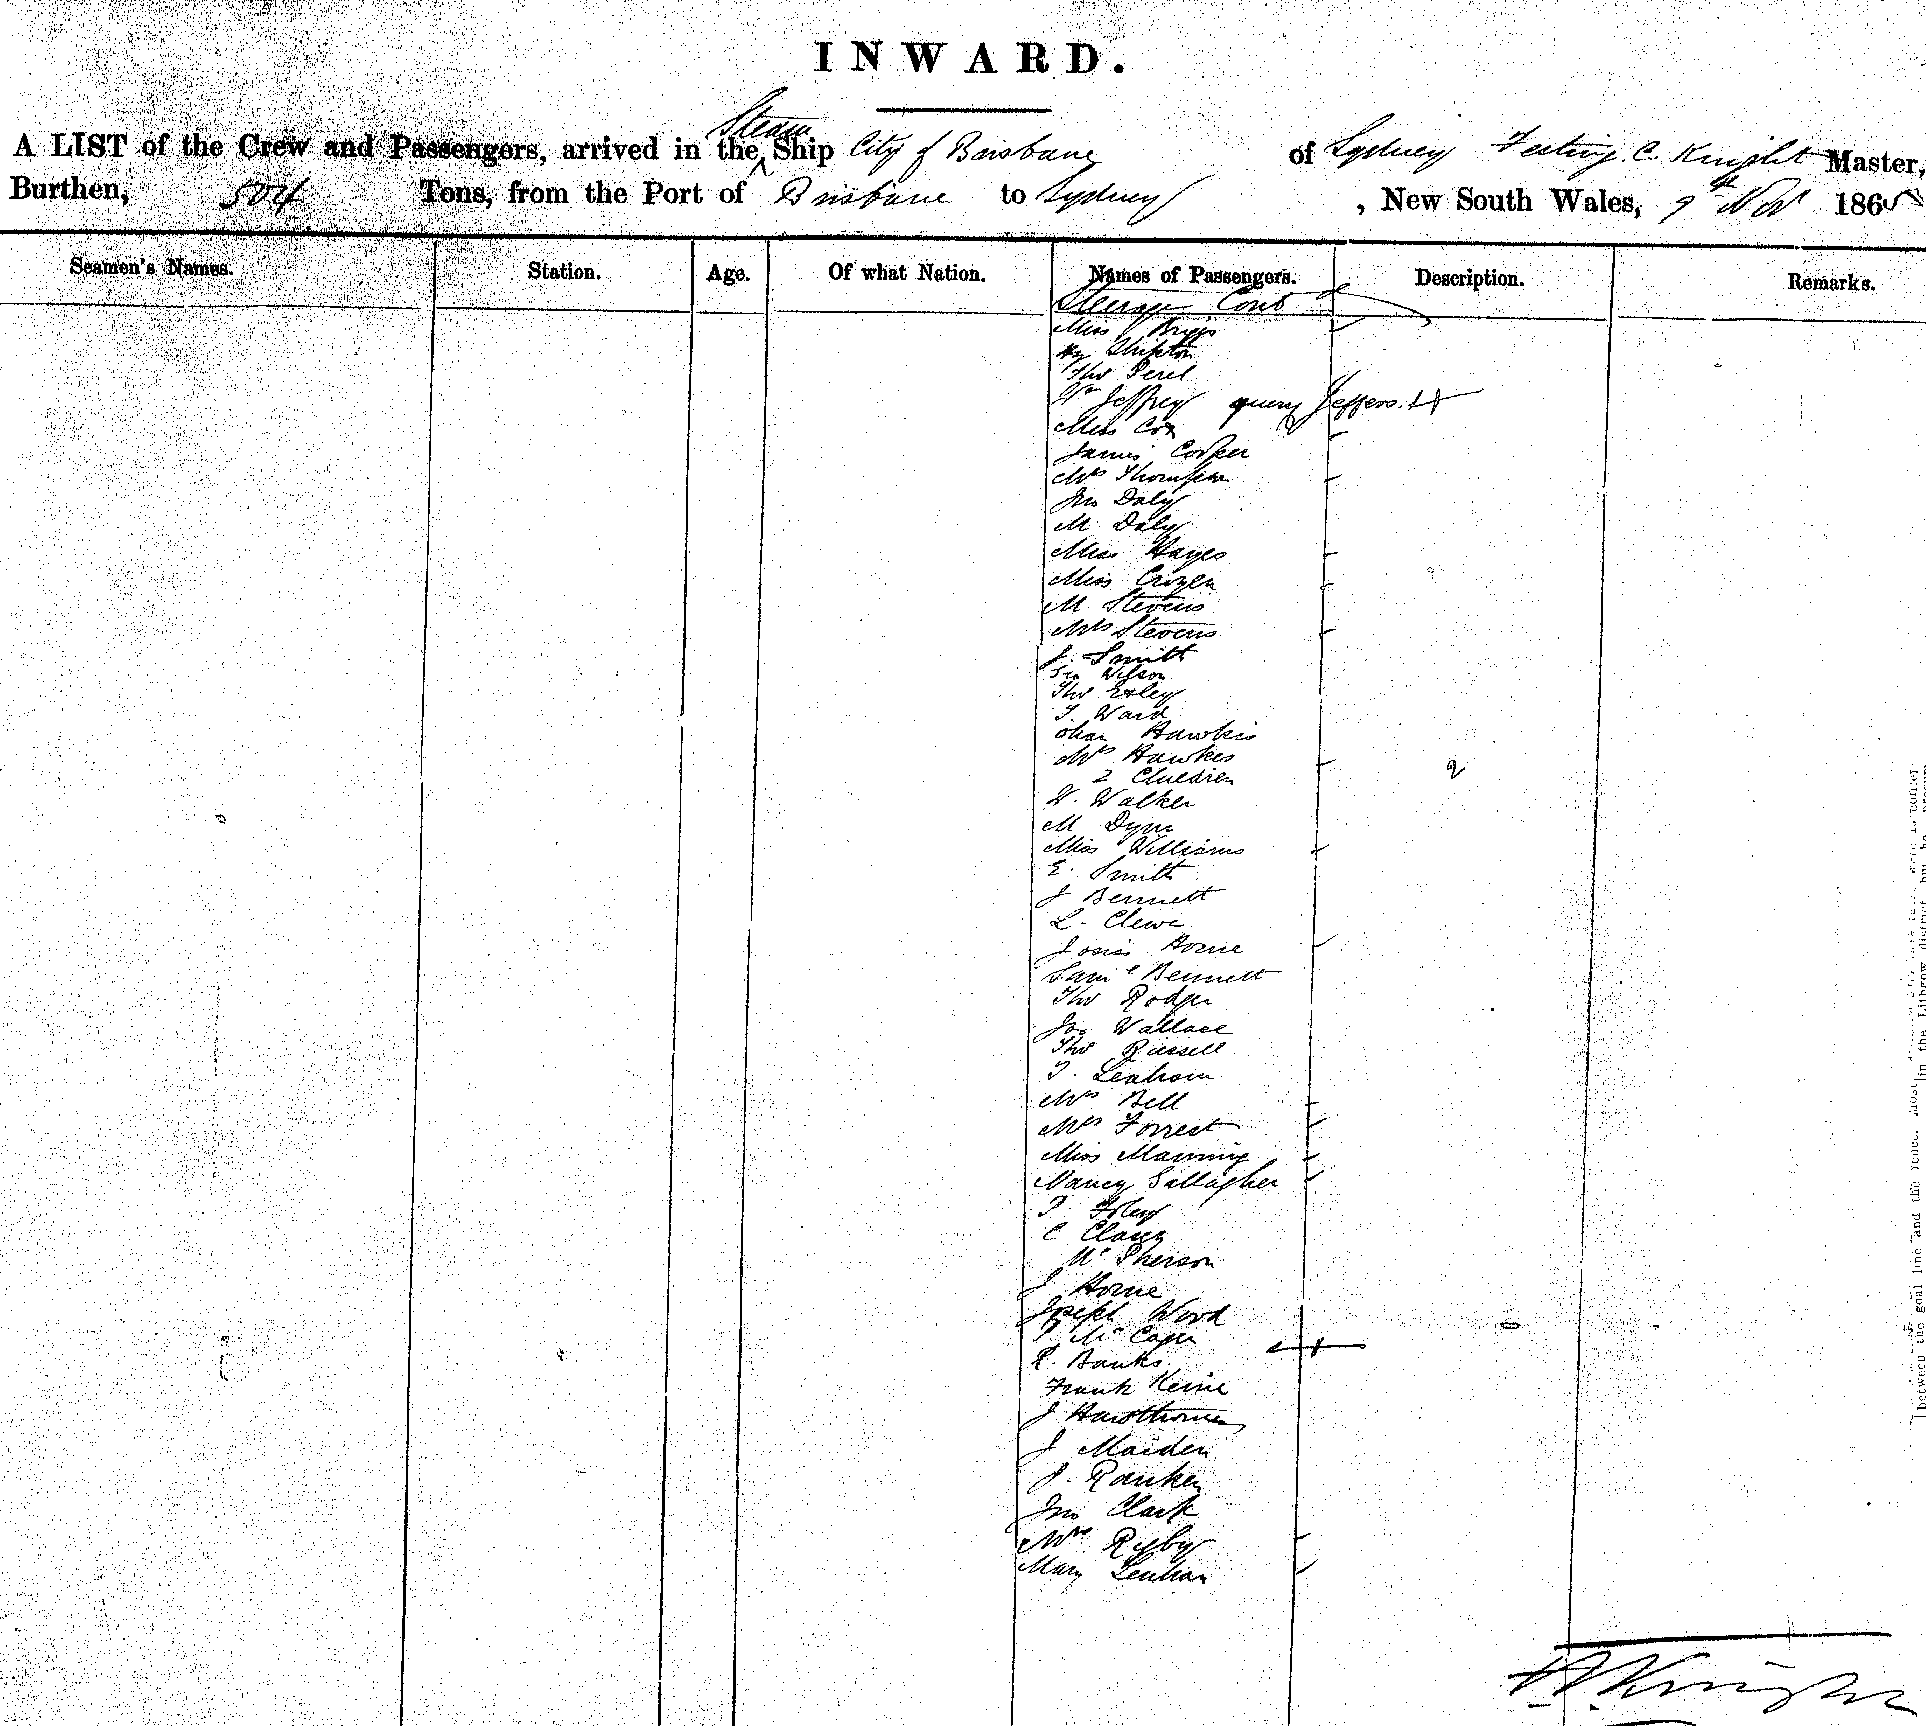 INWARD.
Steam
A LIST of the Crew and Passengers, arrived in the Ship City of Brisbane of Sydney C. Knight Master,
Burthen, 504 Tons, from the Port of Brisbane to Sydney, New South Wales, 9th Nov 1865
Seamen's Names. Station. Age. Of what Nation. Names of Passengers. Description. Remarks.
Steerage Cont
Miss Briggs
Hy Shipton
Thos
Wm Jeffrey query Jeffers
Miss Cox
James Cooper
Mrs Thompson
Jno Daly
M Daly
Miss Hayes
Miss
M Stevens
Mrs Stevens
J. Smith
Wilson
Thos Exley
T. Ward
Chas Hawkes
Mrs Hawkes
2 Children 2
W. Walker
M
Miss Williams
E. Smith
J Bennett
L.
Horne
Saml Bennett
Thos Rodger
Wallace
Thos Russell
T. Lenham
Mrs Bell
Mrs Forrest
Miss Manning
Nancy Gallagher
Foley
C
McPherson
J Horne
Joseph Wood
Mc
R. Banks
Frank
J Hawthorne
J Maiden
J. Ranken
Jno Clark
Mrs Rigby
Mary Lenham
Knight